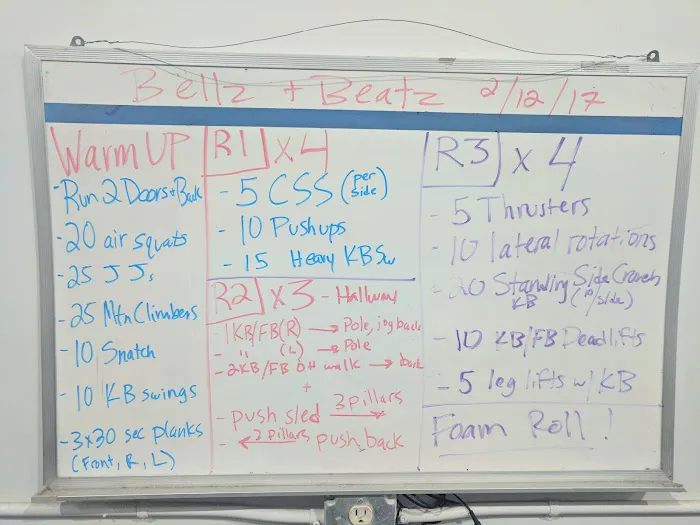 Bellz + Beatz 2/12/17
Warm UP
- Run 2 Doors + Back
- 20 air squats
- 25 JJs
- 25 Mtn Climbers
- 10 Snatch
- 10 KB swings
- 3x30 sec planks
(Front, R, L)
R1 x 4
- 5 CSS (per side)
- 10 Pushups
- 15 Heavy KB Sw
R2 x 3 - Hallway
- 1KB/FB (R) → Pole, jog back
- " (L) → Pole
- 2KB/FB OH walk → back
+
- push sled 3 pillars →
- ← 3 pillars push back
R3 x 4
- 5 Thrusters
- 10 lateral rotations
- 20 Standing Side Crunch
KB (10/side)
- 10 KB/FB Deadlifts
- 5 leg lifts w/ KB
Foam Roll!